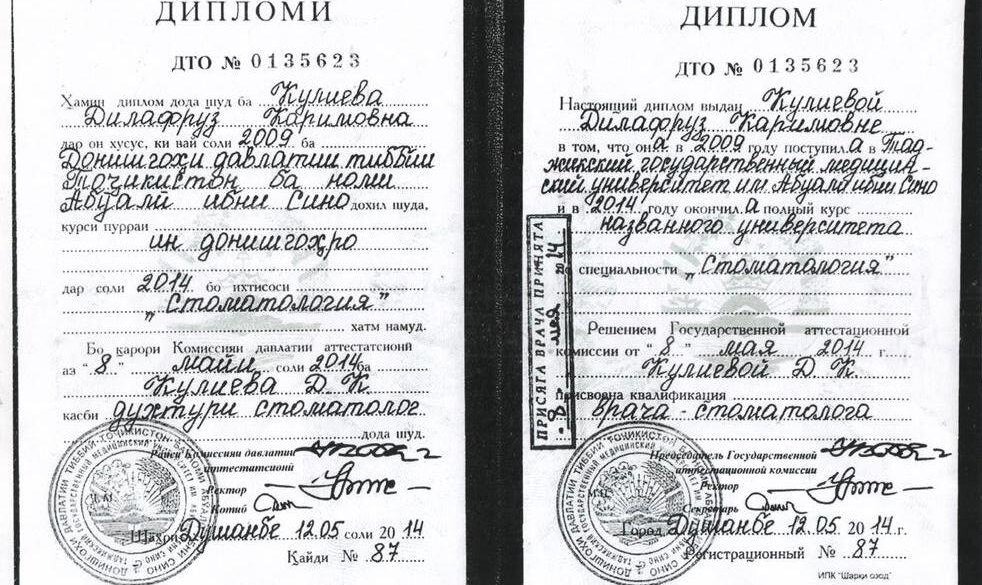 ДИПЛОМИ
ДТО № 0135623
Хамин диплом дода шуд ба Кулиева
Дилафруз Каримовна
дар он хусус, ки вай соли 2009 ба
Донишгохи давлатии тиббии
Точикистон ба номи
Абуали ибни Сино дохил шуда,
курси пурраи
ин донишгоҳро
дар соли 2014 бо ихтисоси
„Стоматология”
хатм намуд.
Бо қарори Комиссияи давлатии аттестатсионӣ
аз "8" майи соли 2014 ба
Кулиева Д. К.
касби духтури стоматолог
дода шуд.
Раиси Комиссияи давлатии
аттестатсионӣ
Ректор
Котиб
Шаҳри Душанбе 12.05 соли 2014
Қайди № 87
ДИПЛОМ
ДТО № 0135623
Настоящий диплом выдан Кулиевой
Дилафруз Каримовне
в том, что она в 2009 году поступила в Тад-
жикский государственный медицин-
ский университет им. Абуали ибни Сино
и в 2014 году окончила полный курс
названного университета
по специальности „Стоматология”
Решением Государственной аттестационной
комиссии от "8" мая 2014 г.
Кулиевой Д. К.
присвоена квалификация
врача-стоматолога
Председатель Государственной
аттестационной комиссии
Ректор
Секретарь
М.П.
Город Душанбе 12.05 2014 г.
Регистрационный № 87
ИПК "Шарки озод"
ПРИСЯГА ВРАЧА ПРИНЯТА
"8" мая 2014